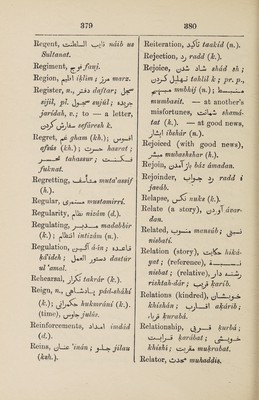 379
380
Regent, نائب السلطنت náïb us
Sultanat.
Regiment, فوج fauj.
Region, اقليم iḳlim ; مرز marz.
Register, n., دفتر daftar;
sijil, pl. sujúl ; جريده
jaridah, v.; to — a letter,
سفارش كردن sefáresh k.
Regret, غم gham (kh.); افسوس
afsús (kh.); حسرت hasrat ;
تحسر tahassur ;
Regretting, متأسف muta'assif
(h.).
Regular, مستمري mustamirrí.
Regularity, نظام nizám (d.).
Regulating,
(k.); انتظام intizám (n.).
Regulation, آئين á-ín ; قاعده
ḳá'ideh ; دستور العمل dastúr
ul 'amal.
Rehearsal, تكرار takrár (k.).
Reign, n., پادشاهي pád-sháhí
(k.); حكمراني hukmrání (k.).
(time), جلوس julús.
Reinforcements, امداد imdád
(d.).
Reins, عنان 'inán ; جلو jilau
(ksh.).
Reiteration, تاكيد taakíd (n.).
Rejection, رد radd (k.).
Rejoice, شاد شدن shád sh ;
تهليل كردن tahlíl k ; pr. p.,
مبهج mubhij (n.); منبسط
mumbasit. — at another's
misfortunes, شماتت shamá-
tat (k.). — at good news,
ابشار ibshár (n.).
Rejoiced (with good news),
مبشر mubashshar (h.).
Rejoin, باز آمدن báz ámadan.
Rejoinder, رد جواب radd i
javáb.
Relapse, نكس nuks (k.).
Relate (a story), آوردن ávar-
dan.
Related, منسوب mansúb ; نسبتي
nisbatí.
Relation (story), حكايت hiká-
yat ; (reference), نسبت
nisbat ; (relative), رشته دار
rishtah-dár ; قريب ḳaríb.
Relations (kindred), خويشان
khíshán ; اقارب aḳárib ;
قربا ḳurabá.
Relationship, قربى ḳurbá ;
قرابت ḳarábat ; خويشي
khíshí ; مقربت muḳrabat.
Relator, محدث muhaddis.